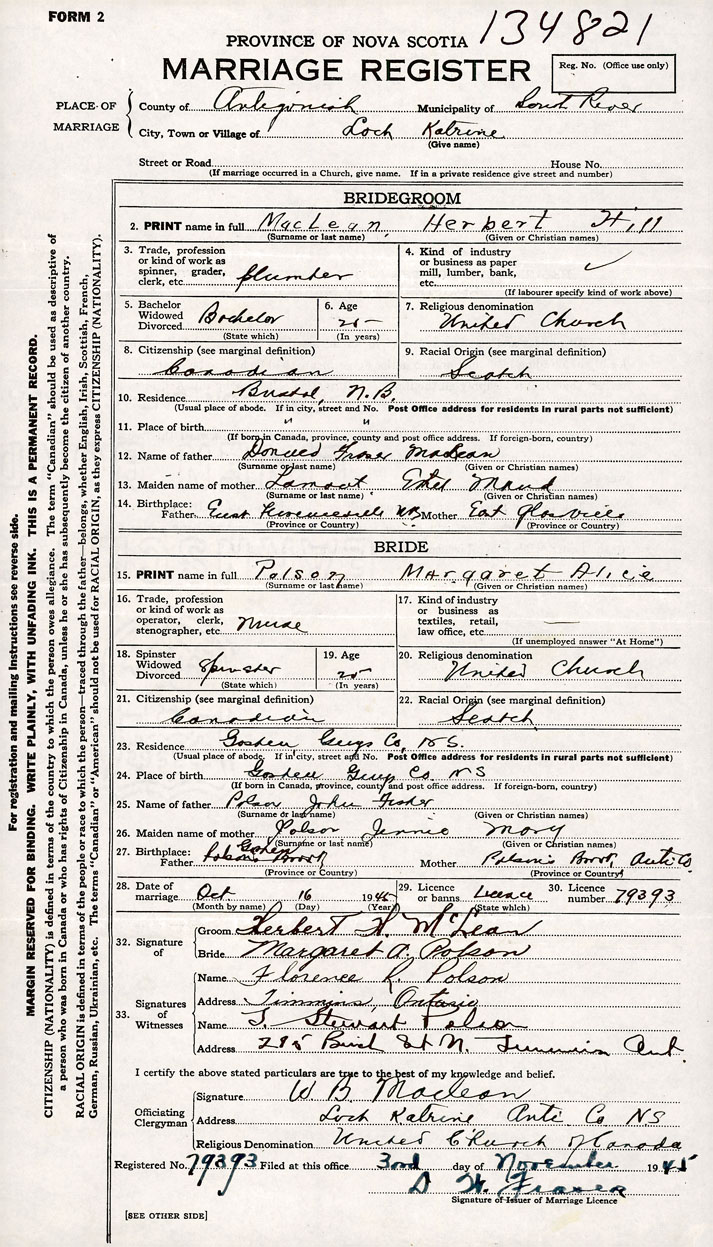 FORM 2
134821
PROVINCE OF NOVA SCOTIA
MARRIAGE REGISTER
Reg. No. (Office use only)
PLACE OF MARRIAGE
County of Antigonish Municipality of South River
City, Town or Village of Loch Katrine
(Give name)
Street or Road House No.
(If marriage occurred in a Church, give name. If in a private residence give street and number)
BRIDEGROOM
2. PRINT name in full MacLean, Herbert Hill
(Surname or last name) (Given or Christian names)
3. Trade, profession or kind of work as spinner, grader, clerk, etc. Plumber
4. Kind of industry or business as paper mill, lumber, bank, etc. ✓
(If labourer specify kind of work above)
5. Bachelor Widowed Divorced Bachelor
(State which)
6. Age 25
(In years)
7. Religious denomination
United Church
8. Citizenship (see marginal definition)
Canadian
9. Racial Origin (see marginal definition)
Scotch
10. Residence Bristol, N.B.
(Usual place of abode. If in city, street and No. Post Office address for residents in rural parts not sufficient)
11. Place of birth " "
(If born in Canada, province, county and post office address. If foreign-born, country)
12. Name of father Donald Fraser MacLean
(Surname or last name) (Given or Christian names)
13. Maiden name of mother Lamont Ethel Maud
(Surname or last name) (Given or Christian names)
14. Birthplace: Father East NB Mother East
(Province or Country) (Province or Country)
BRIDE
15. PRINT name in full Polson Margaret Alicie
(Surname or last name) (Given or Christian names)
16. Trade, profession or kind of work as operator, clerk, stenographer, etc. Nurse
17. Kind of industry or business as textiles, retail, law office, etc. —
(If unemployed answer "At Home")
18. Spinster Widowed Divorced Spinster
(State which)
19. Age 25
(In years)
20. Religious denomination
United Church
21. Citizenship (see marginal definition)
Canadian
22. Racial Origin (see marginal definition)
Scotch
23. Residence Goshen Guys Co, NS.
(Usual place of abode. If in city, street and No. Post Office address for residents in rural parts not sufficient)
24. Place of birth Goshen Guys Co. NS
(If born in Canada, province, county and post office address. If foreign-born, country)
25. Name of father Polson John Fisher
(Surname or last name) (Given or Christian names)
26. Maiden name of mother Polson Jennie Mary
(Surname or last name) (Given or Christian names)
27. Birthplace: Father Goshen Polson's Brook Mother Polson's Brook Anti Co
(Province or Country) (Province or Country)
28. Date of marriage Oct 16 1945
(Month by name) (Day) (Year)
29. Licence or banns Licence
(State which)
30. Licence number 79393
32. Signature of
Groom Herbert H. McLean
Bride Margaret A. Polson
33. Signatures of Witnesses
Name Florence R. Polson
Address Timmins, Ontario
Name J. Stewart Polson
Address 215 Birch St N. Timmins Ont.
I certify the above stated particulars are true to the best of my knowledge and belief.
Officiating Clergyman
Signature W B. Maclean
Address Loch Katrine Anti Co NS
Religious Denomination United Church of Canada
Registered No. 79393 Filed at this office 3rd day of November 1945
D H. Fraser
Signature of Issuer of Marriage Licence
[SEE OTHER SIDE]
For registration and mailing instructions see reverse side.
MARGIN RESERVED FOR BINDING. WRITE PLAINLY, WITH UNFADING INK. THIS IS A PERMANENT RECORD.
CITIZENSHIP (NATIONALITY) is defined in terms of the country to which the person owes allegiance. The term "Canadian" should be used as descriptive of
a person who was born in Canada or who has rights of Citizenship in Canada, unless he or she has subsequently become the citizen of another country.
RACIAL ORIGIN is defined in terms of the people or race to which the person—traced through the father—belongs, whether English, Irish, Scottish, French,
German, Russian, Ukrainian, etc. The terms "Canadian" or "American" should not be used for RACIAL ORIGIN, as they express CITIZENSHIP (NATIONALITY).